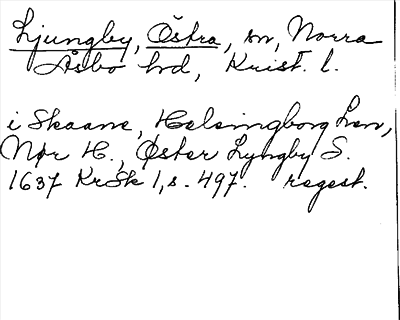 Ljungby, Östra, sn, Norra
Åsbo hd, Krist. l.
i Skaane, Helsingborg Len,
Nør H., Øster Lyngby S.
1637 KrSk 1, s. 497. regest.